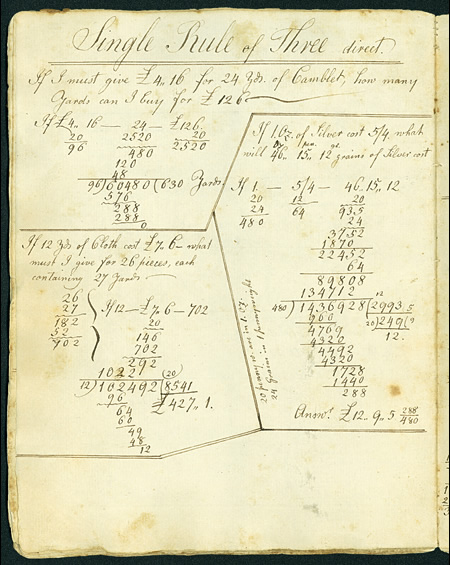 Single Rule of Three direct.
If I must give £4,, 16 for 24 Yds. of Camblet, how many
Yards can I buy for £126
If £4,, 16 — 24 — £126.
20 2520 20
96 480 2520
120
48
96)60480(630 Yards
576
288
288
0
If 1 Oz. of Silver cost 5/4, what
will 46,, 15,, 12 grains of Silver cost
Oz pen. gr.
If 1 — 5/4 — 46,, 15,, 12
20 12 20
24 64 935
480 24
3752
1870
22452
64
89808
134712
480)1436928(2993 5
12
960 20)249(9
4769 12.
4320
4492
4320
1728
1440
288
Answr. £12,, 9,, 5 288/480
If 12 Yds of Cloth cost £7,, 6 — what
must I give for 26 pieces, each
containing 27 Yards
26
27
182
52
702
If 12 — £7,, 6 — 702
20
146
702
292
1022 (20)
12)102492(8541
96 £427,, 1.
64
60
49
48
12